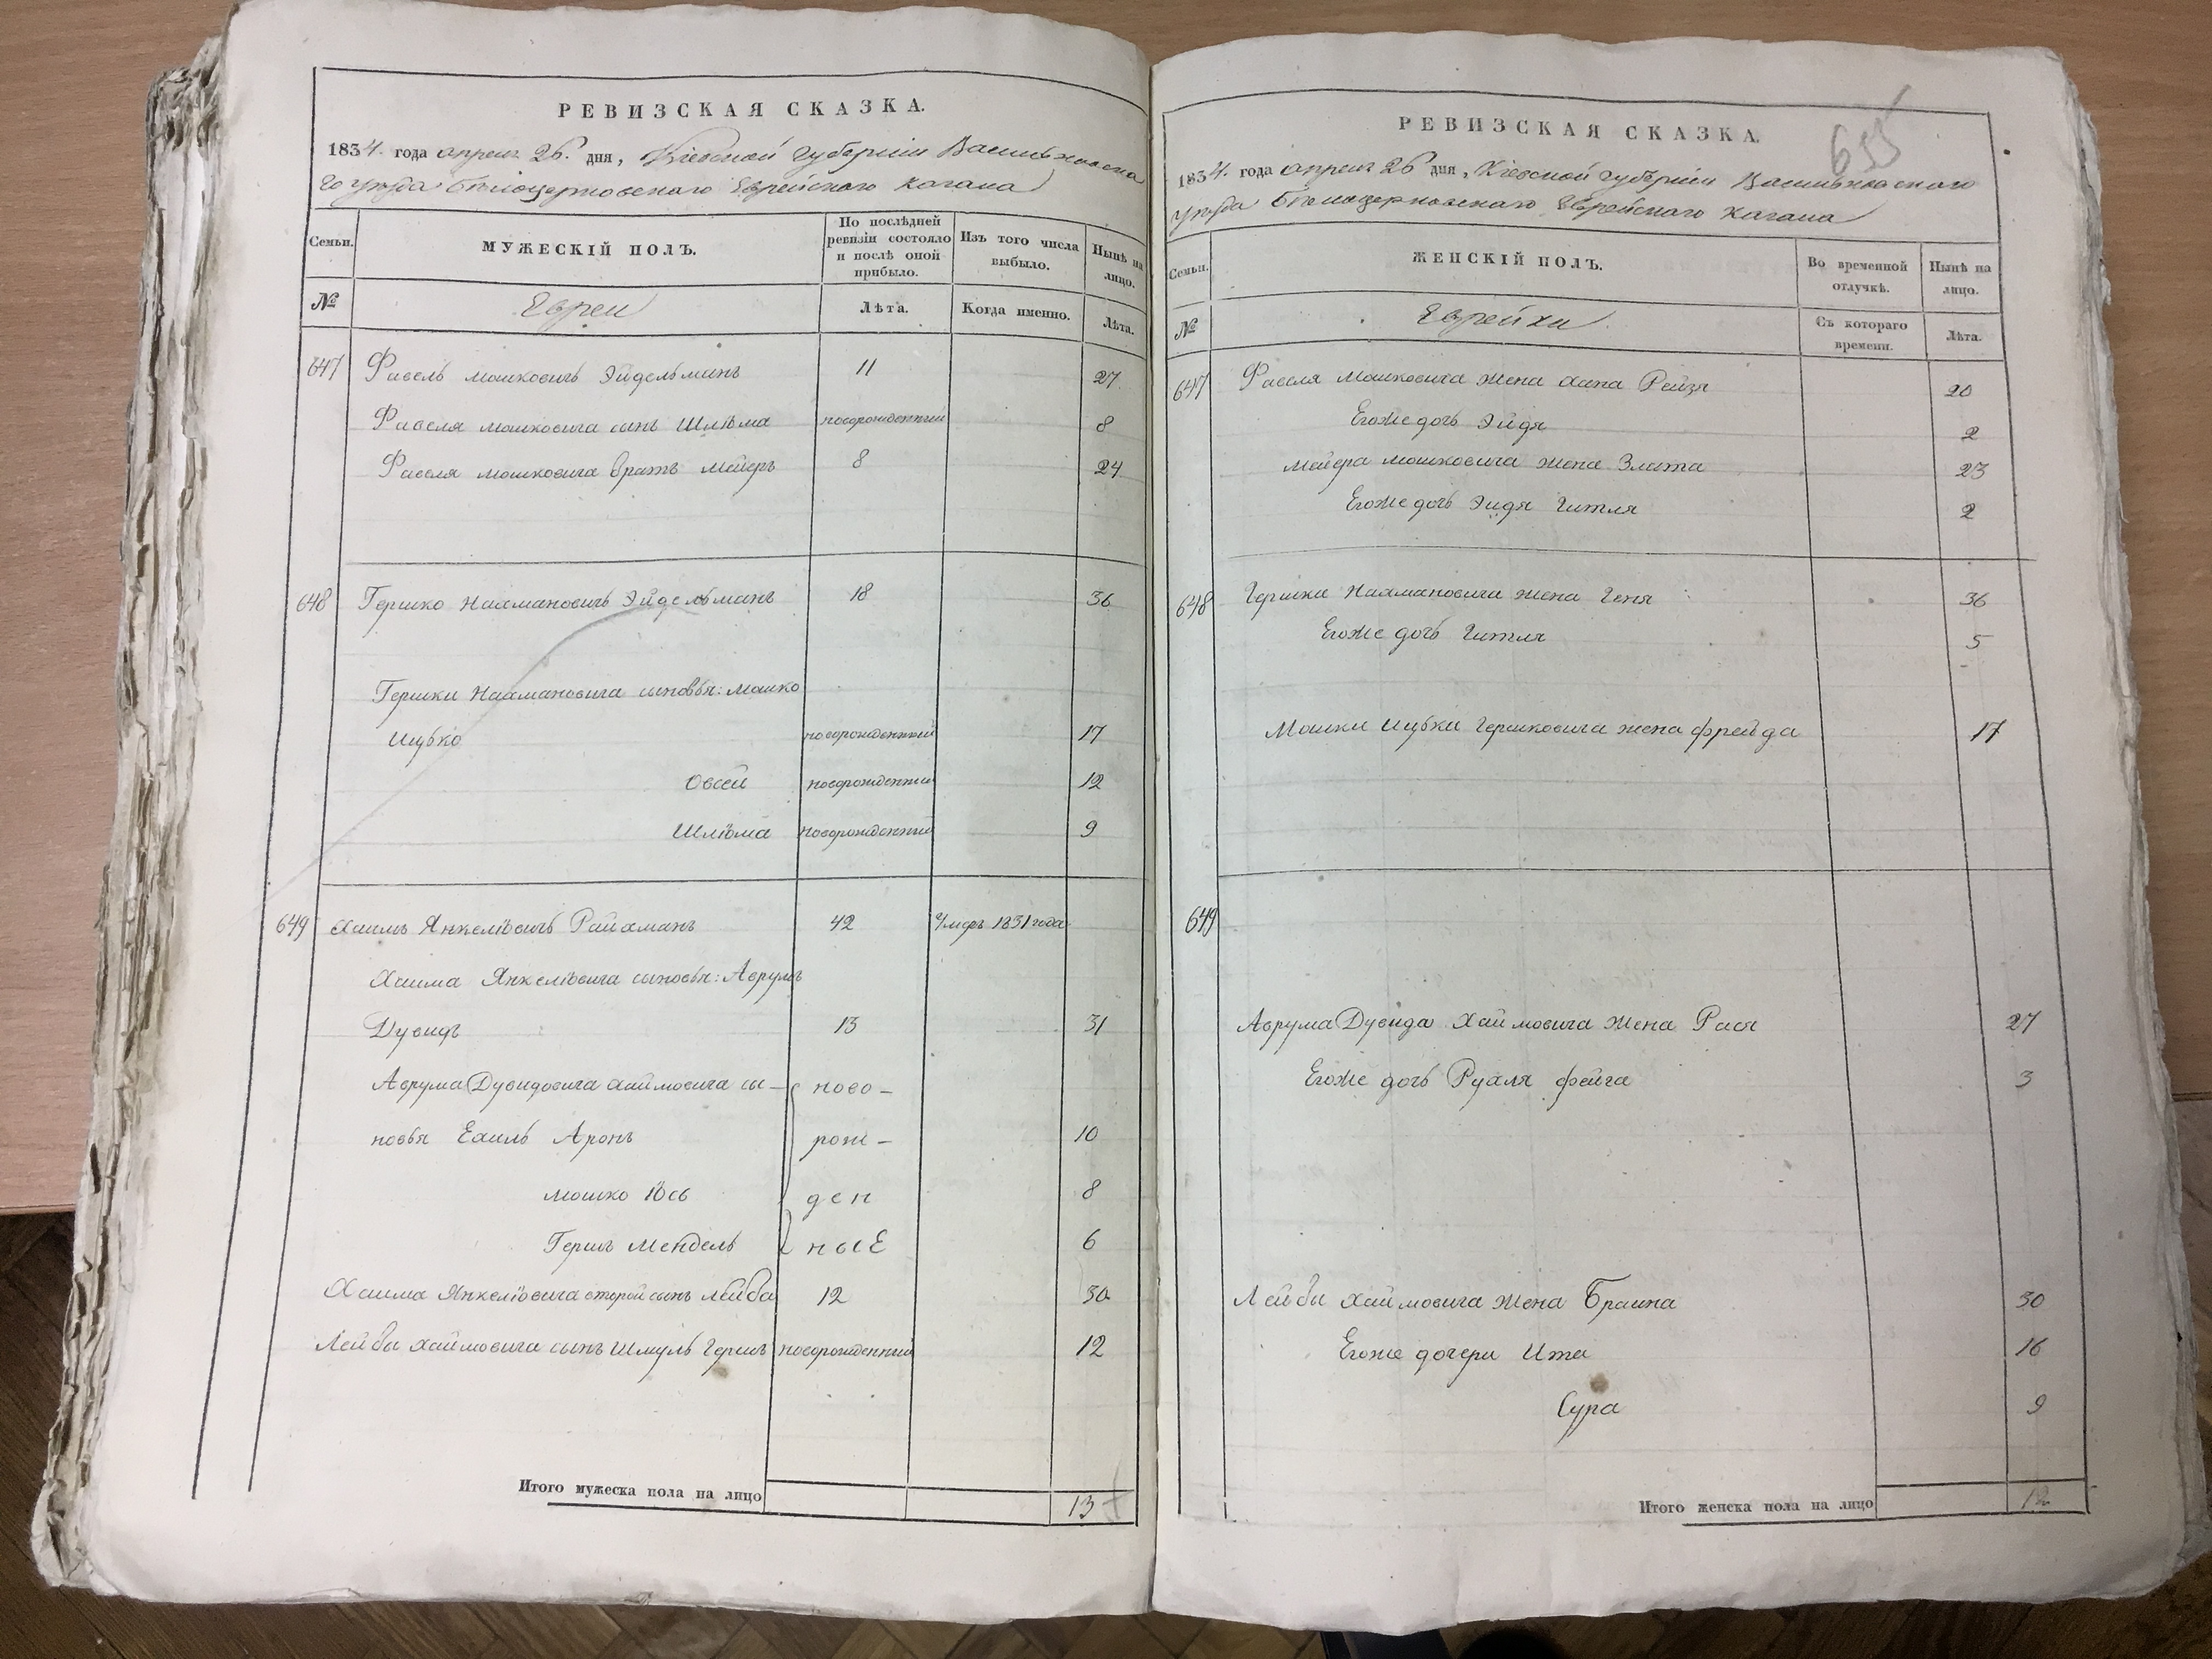 РЕВИЗСКАЯ СКАЗКА.
1834. года апреля 26. дня, Кіевской губерніи Васильковска
го уѣзда Бѣлоцерковскаго Еврейскаго кагала
Семьи.
МУЖЕСКІЙ ПОЛЪ.
По послѣдней ревизіи состояло и послѣ оной прибыло.
Изъ того числа выбыло.
Нынѣ на лицо.
№
Евреи
Лѣта.
Когда именно.
Лѣта.
647 Фавель Мошковичъ Эйдельманъ 11 27
Фавеля Мошковича сынъ Шліома новорожденный 8
Фавеля Мошковича братъ Мейеръ 8 24
648 Гершко Нахмановичъ Эйдельманъ 18 36
Гершки Нахмановича сыновья: Мошко
Ицько новорожденный 17
Овсей новорожденный 12
Шліома новорожденный 9
649 Хаимъ Янкеліовичъ Райхманъ 42 Умеръ 1831 года
Хаима Янкеліовича сыновья: Аврумъ
Дувидъ 13 31
Аврума Дувидовича Хаймовича сы- ново-
новья Ехиль Аронъ рож- 10
Мошко Іось ден 8
Гершъ Мендель ные 6
Хаима Янкеліовича второй сынъ Лейба 12 30
Лейбы Хаймовича сынъ Шмуль Гершъ новорожденный 12
Итого мужеска пола на лицо 13
РЕВИЗСКАЯ СКАЗКА.
655
1834. года апреля 26 дня, Кіевской губерніи Васильковскаго
уѣзда Бѣлоцерковскаго Еврейскаго кагала
Семьи.
ЖЕНСКІЙ ПОЛЪ.
Во временной отлучкѣ.
Нынѣ на лицо.
№
Еврейки
Съ котораго времени.
Лѣта.
647 Фавеля Мошковича жена Хана Рейзя 20
Егоже дочь Эйдя 2
Мейера Мошковича жена Злата 23
Егоже дочь Эйдя Гитля 2
648 Гершки Нахмановича жена Геня 36
Егоже дочь Гитля 5
Мошки Ицьки Гершковича жена Фрейда 17
649
Аврума Дувида Хаймовича жена Рася 27
Егоже дочь Рухля Фейга 3
Лейбы Хаймовича жена Браина 30
Егоже дочери Ита 16
Сура 9
Итого женска пола на лицо 12